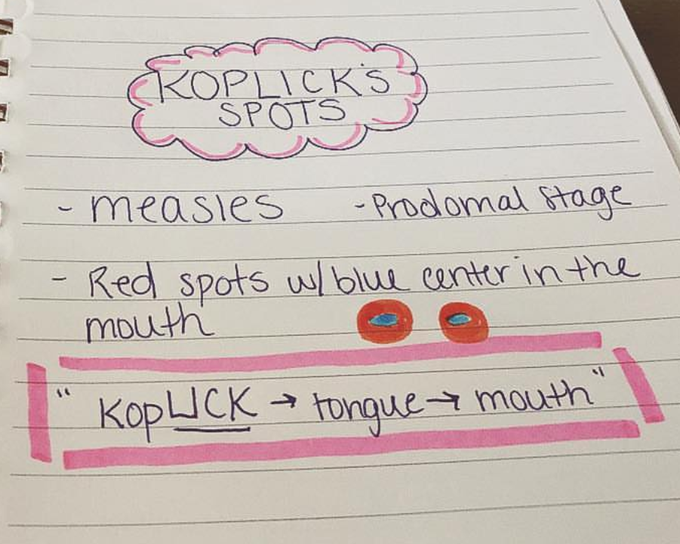 KOPLICK'S
SPOTS
- measles - Prodomal Stage
- Red spots w/ blue center in the
mouth
"KopLICK → tongue → mouth"